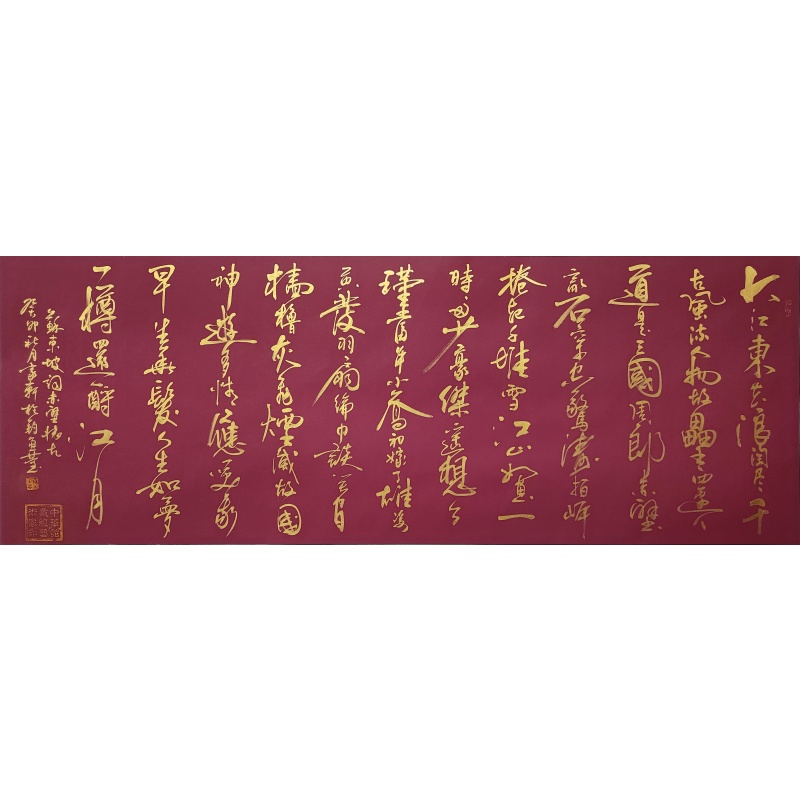 大江東去浪淘盡千
古風流人物故壘西邊人
道是三國周郎赤壁
亂石穿空驚濤拍岸
捲起千堆雪江山如畫一
時多少豪傑遙想公
瑾當年小喬初嫁了雄姿
英發羽扇綸巾談笑間
檣櫓灰飛煙滅故國
神遊多情應笑我
早生華髮人生如夢
一樽還酹江月
蘇東坡詞赤壁懷古
癸卯秋月書於